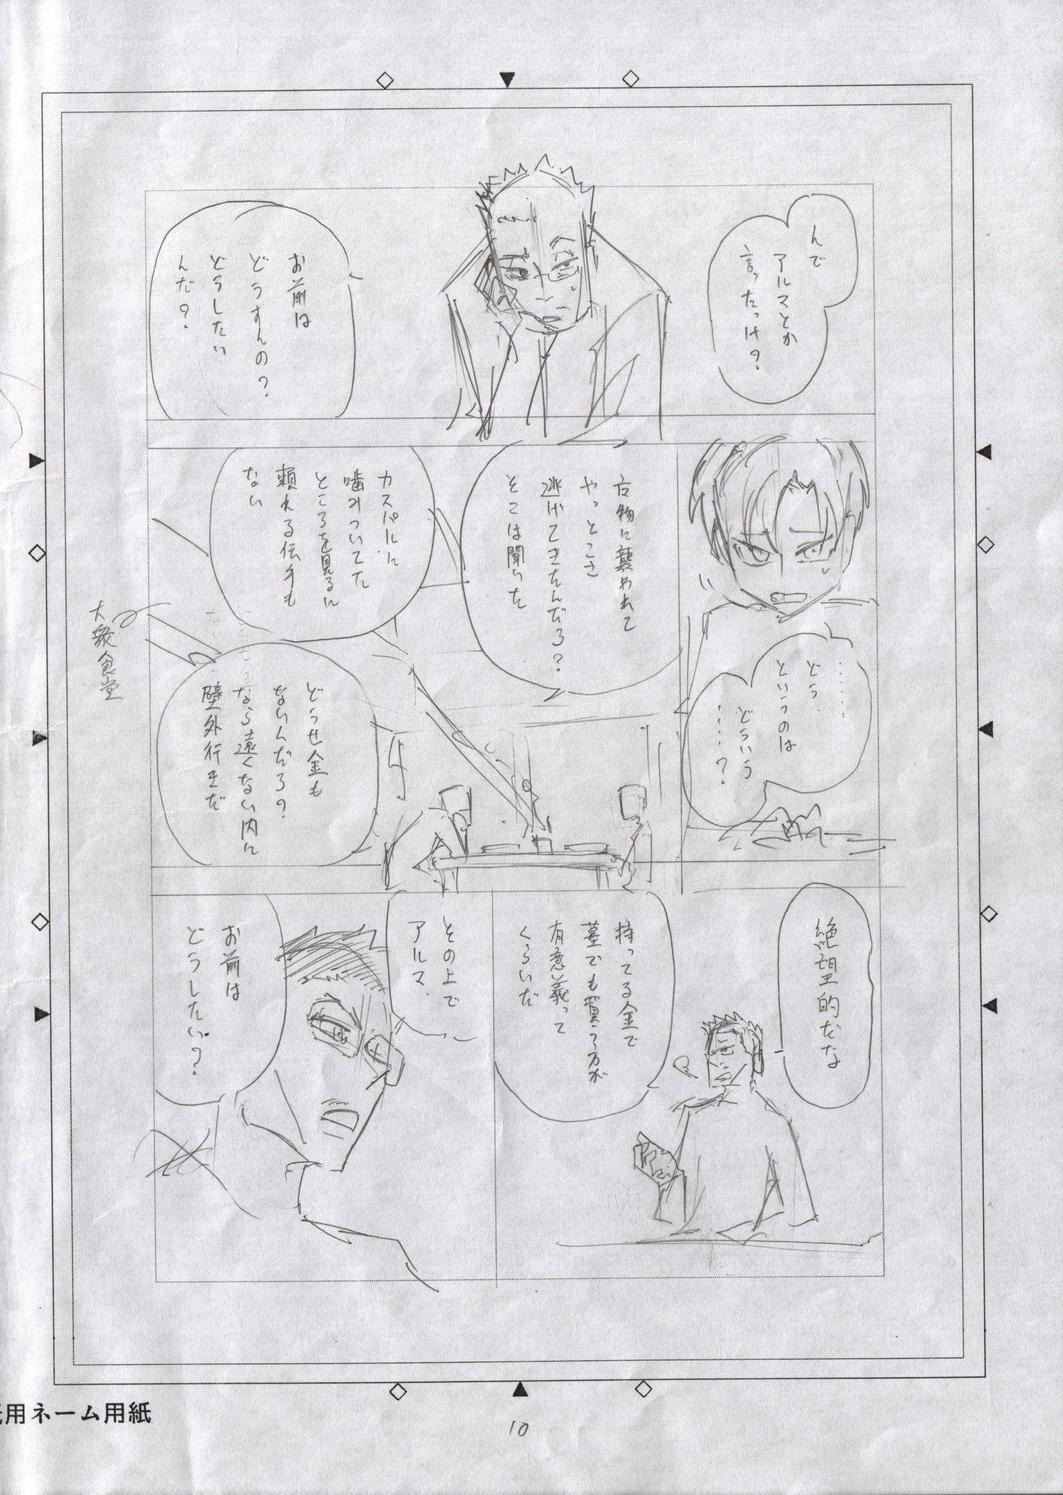 んで
アルマとか
言ったっけ?
お前は
どうすんの?
どうしたい
んだ?
……
どう
というのは
どういう
……?
に襲われて
やっとこさ
逃げてきたんだろ?
そこは聞いた
カスパルに
噛みついてた
ところを見るに
頼れる伝手も
ない
どうせ金も
ないんだろ?
なら遠くない内に
壁外行きだ
大衆食堂
絶望的だな
持ってる金で
墓でも買う方が
有意義って
くらいだ
その上で
アルマ
お前は
どうしたい?
用ネーム用紙
10